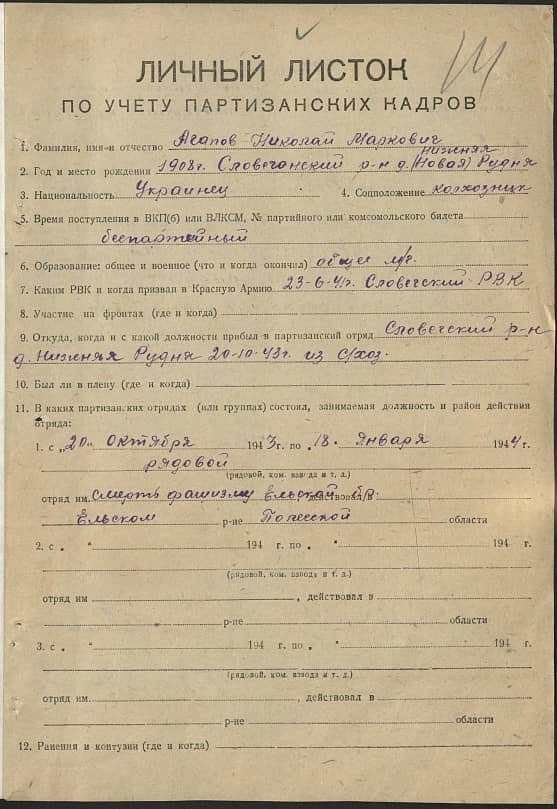 ЛИЧНЫЙ ЛИСТОК
ПО УЧЕТУ ПАРТИЗАНСКИХ КАДРОВ
1. Фамилия, имя и отчество Агапов Николай Маркович
нижняя
2. Год и место рождения 1908г. Словечанский р-н д. (Новая) Рудня
3. Национальность Украинец 4. Соцположение колхозник
5. Время поступления в ВКП(б) или ВЛКСМ, № партийного или комсомольского билета
беспартейный
6. Образование: общее и военное (что и когда окончил) общее м/г.
7. Каким РВК и когда призван в Красную Армию 23-6-41г. Словечский РВК
8. Участие на фронтах (где и когда)
9. Откуда, когда и с какой должности прибыл в партизанский отряд Словечский р-н
д. Нижняя Рудня 20-10-43г. из с/хоз.
10. Был ли в плену (где и когда)
11. В каких партизанских отрядах (или группах) состоял, занимаемая должность и район действия
отряда:
1. с „20„ Октября 1943г. по „18„ Января 1944г.
рядовой
(рядовой, ком. взвода и т. д.)
отряд им. Смерть фашизму Ельской бр. действовал в
Ельском р-не Полесской области
2. с „ “ 194 г. по „ “ 194 г.
(рядовой, ком. взвода и т. д.)
отряд им , действовал в
р-не области
3. с „ “ 194 г. по „ “ 194 г.
(рядовой, ком. взвода и т. д.)
отряд им. , действовал в
р-не области
12. Ранения и контузии (где и когда)